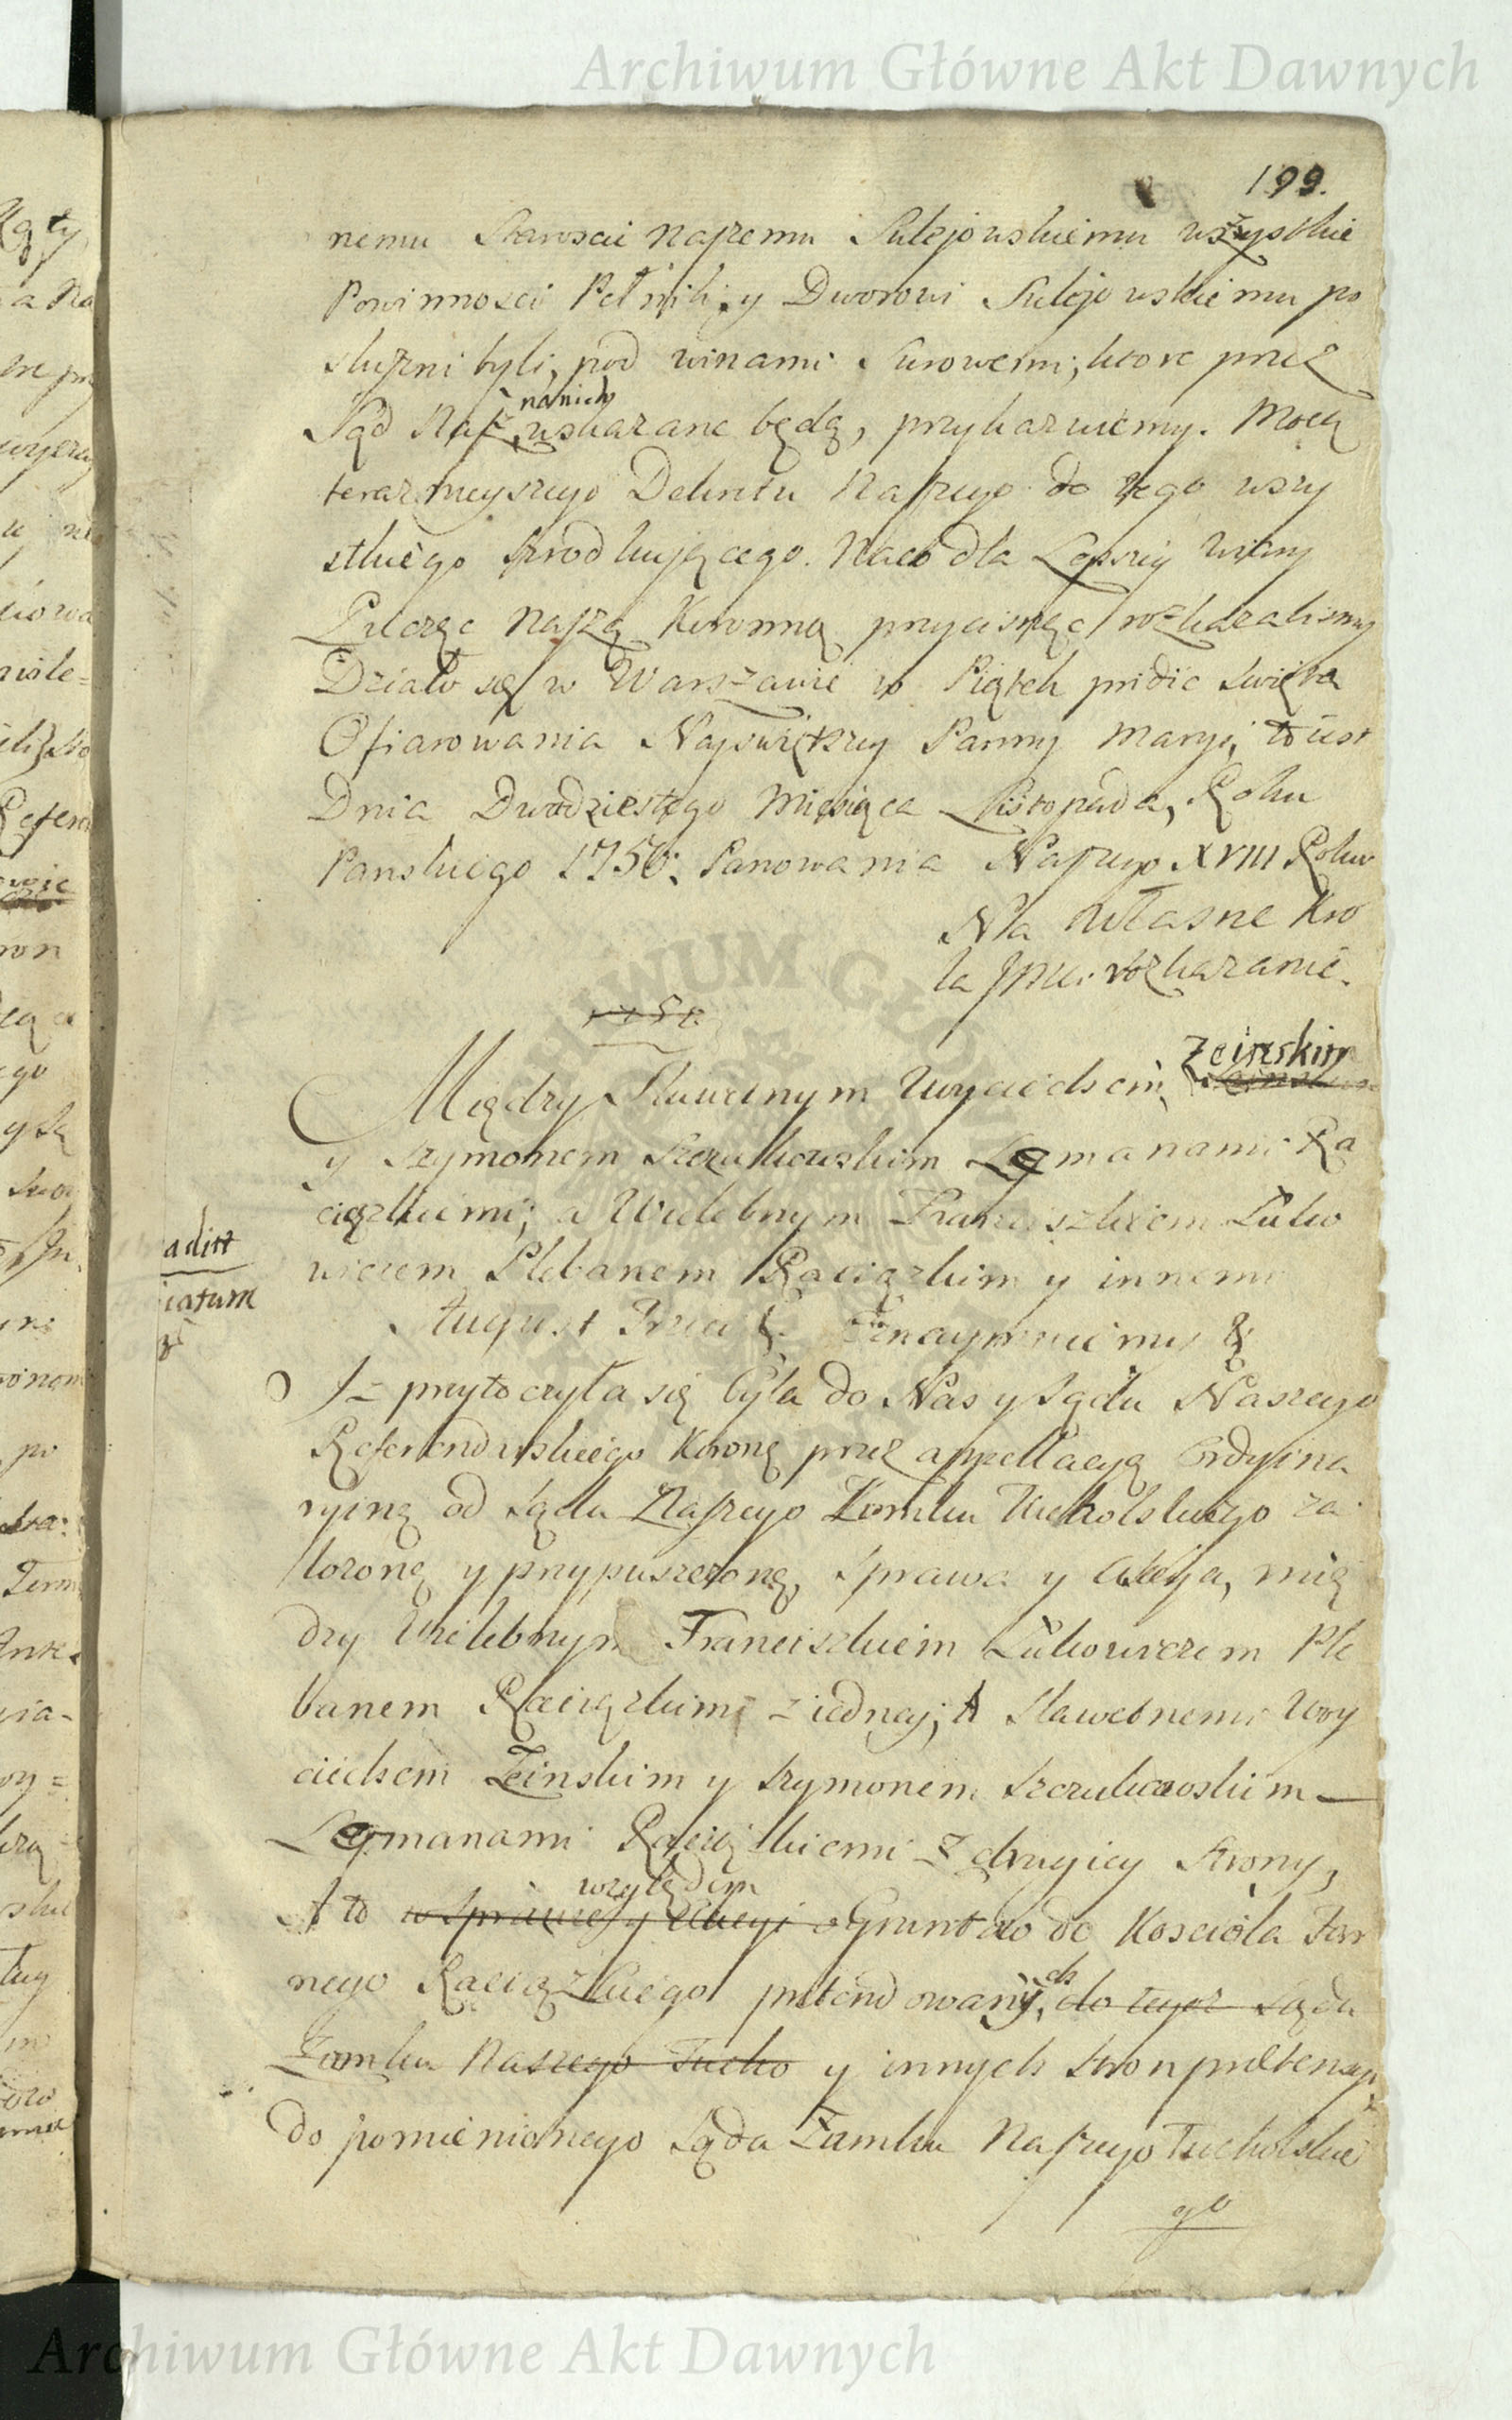 Archiwum Główne Akt Dawnych
199.
nemu Staroscie Naszemu Sulejowskiemu wszystkie
Powinnosci Pełnili, y Dworowi Sulejowskiemu po
słuszni byli, pod winami Surowemi, ktore przez
na nich
Sąd Nasz wskazane będą, przykazuiemy. Mocą
teraznieyszego Dekretu Naszego do tego wszy
stkiego
Pieczęc Naszą Koronną przycisnąc rozkazalismy
Działo się w Warszawie w Piątek pridie swięta
Ofiarowania Nayswiętszey Panny Maryi, to iest
Dnia Dwudziestego Miesiąca Listopada, Roku
Panskiego 1750. Panowania Naszego XVIII Roku
Na własne Kro
la Jmci rozkazanie.
Zeinskim
Między Sławetnym Woyciechem
y Szymonem Szczutkowskim Lemanami Ra
ciązkiemi; a Wielebnym Franciszkiem Lutko
wiczem Plebanem Raciązkim y innemi
August Trzeci &. Oznaymuiemy &
Iz przytoczyła się była do Nas y Sądu Naszego
Referendarskiego Koronę przez appellacyą Ordyina
ryiną od Sądu Naszego Zamku Tucholskiego za
łozoną y przypuszczoną, Sprawa y Akcya, mię
dzy Wielebnym Franciszkiem Lutkowiczem Ple
banem Raciązkim z iedney; A Sławetnemi Woy
ciechem Zeinskim y Szymonem Szczutkowskim
Lemanami Raciązkiemi z drugiey Strony,
względem
A to w Sprawie y Akcyi o Gruntow do Koscioła Far
nego Raciązkiego pretendowanych, do tegoż Sądu
Zamku Naszego Tucho y innych Stron pretensyi
do pomienionego Sądu Zamku Naszego Tucholskie
go
aditt
iatum
Archiwum Główne Akt Dawnych